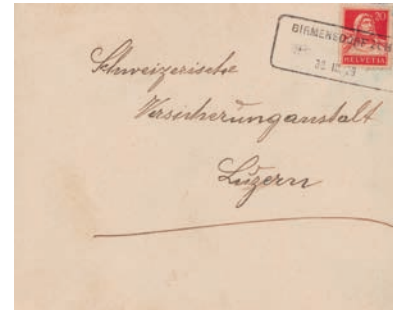 20
BIRMENSDORF
HELVETIA
Schweizerische
Versicherunganstalt
Luzern